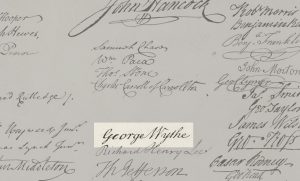 John Hancock
Rob Morris
Benjamin Rush
Benj. Franklin
Hooper
Hewes,
Penn
Samuel Chase
Wm Paca
Thos Stone
Charles Carroll of Carrollton
Geo Clymer
Jas. Smith
Geo. Taylor
James Wilson
Geo. Ross
Caesar Rodney
Rutledge
Heyward Junr.
Lynch Junr.
Middleton
George Wythe
Richard Henry Lee
Th Jefferson